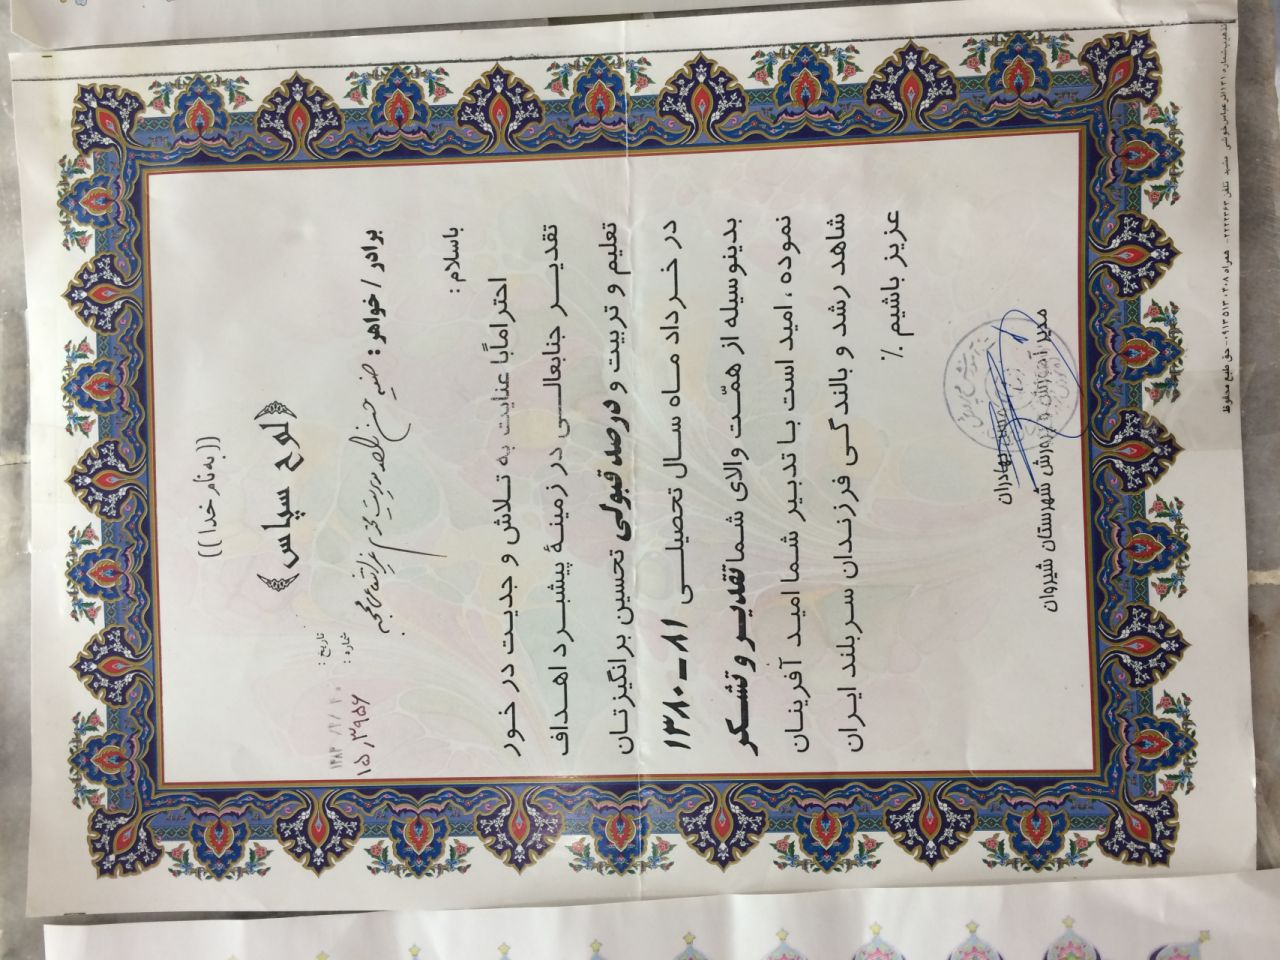 ((به نام خدا))
لوح سپاس
تاریخ : ۱۳۸۲/۲/۲۰
شماره : ۱۵٫۳۹۵۶
برادر / خواهر :
باسلام :
احتراماً با عنایت به تلاش و جدیت در خور
تقدیر جنابعالی در زمینهٔ پیشبرد اهداف
تعلیم و تربیت و درصد قبولی تحسین برانگیزتان
در خرداد ماه سال تحصیلی ۸۱ – ۱۳۸۰
بدینوسیله از همّت والای شما تقدیر و تشکر
نموده ، امید است با تدبیر شما امید آفرینان
شاهد رشد و بالندگی فرزندان سربلند ایران
عزیز باشیم ./
بهادران
مدیر آموزش و پرورش شهرستان شیروان